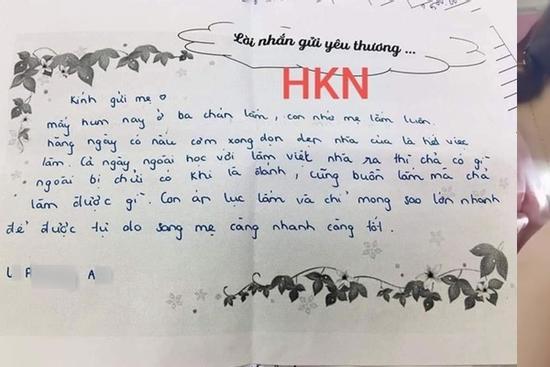 Lời nhắn gửi yêu thương ...
HKN
Kính gửi mẹ
mấy hum nay ở ba chán lắm, con nhớ mẹ lắm luôn
hằng ngày có nấu cơm xong dọn dẹp nhà cửa là hết việc
làm. Cả ngày, ngoài học với làm việt nhà ra thì chả có gì
ngoài bị chửi có khi là đánh, cũng buồn lắm mà chả
làm được gì. Con áp lực lắm và chỉ mong sao lớn nhanh
để được tự do sang mẹ càng nhanh càng tốt.